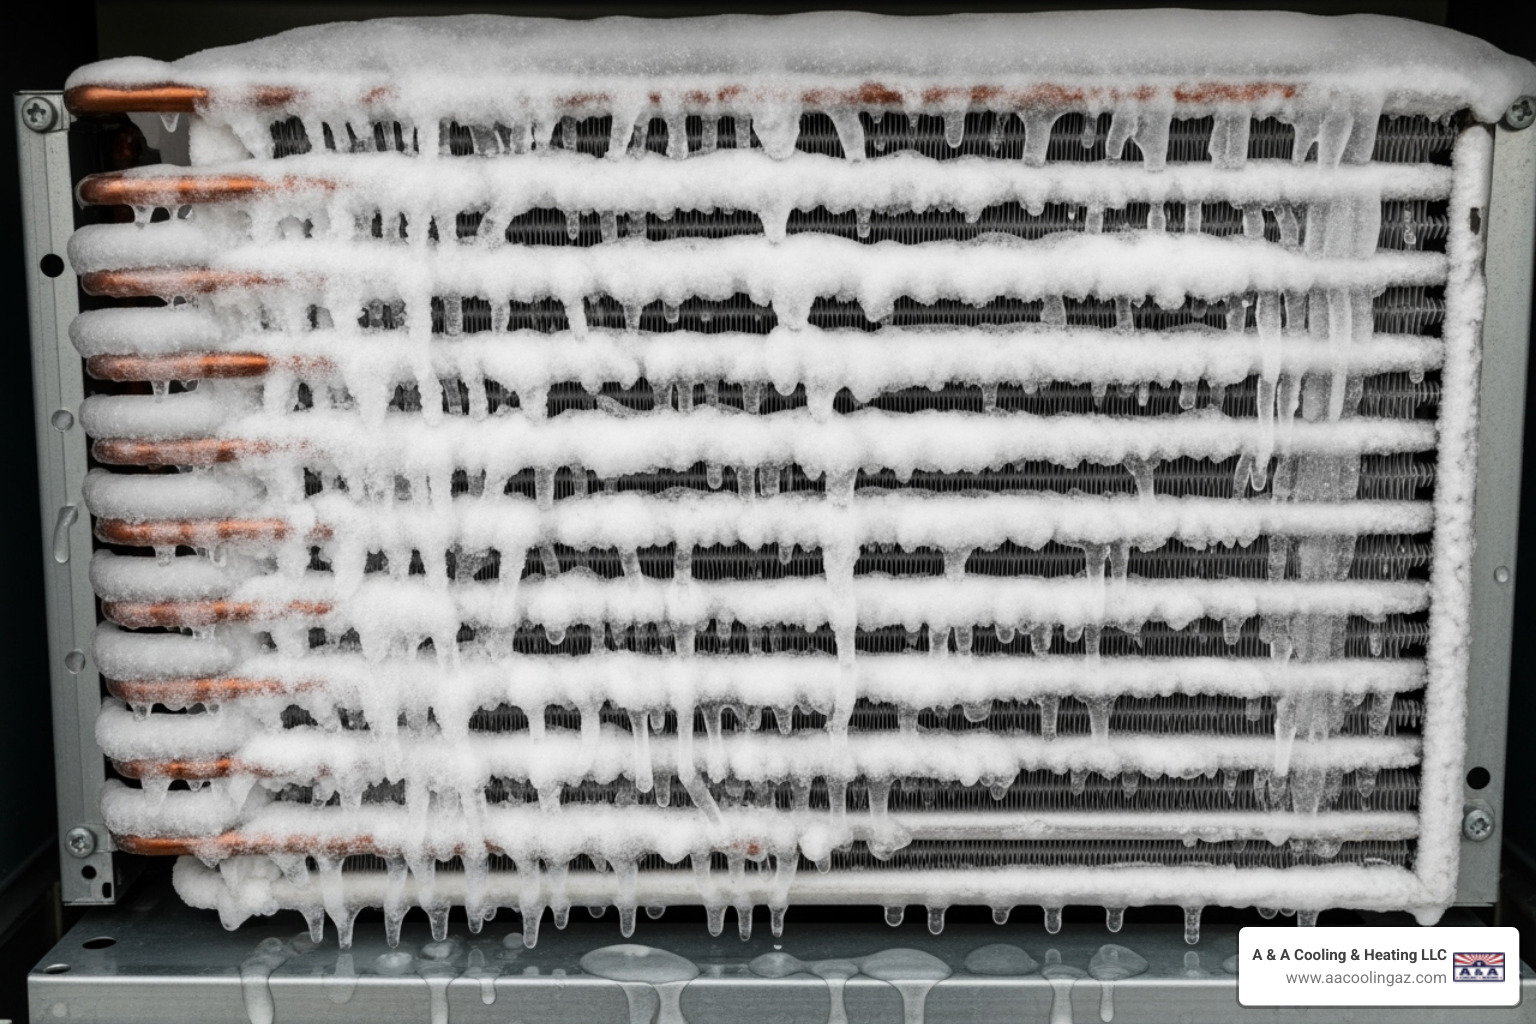 A & A Cooling & Heating LLC
www.aacoolingaz.com
A & A